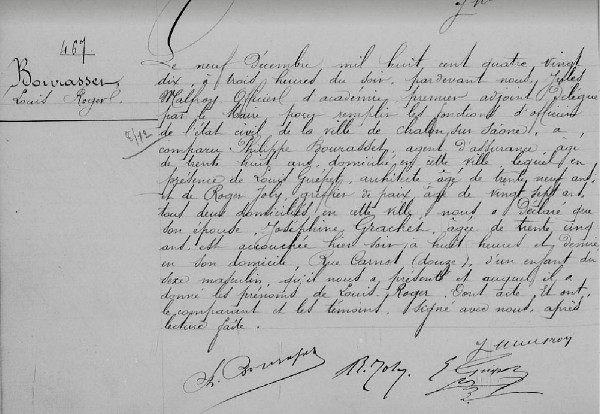 467
Bourasset
Louis Roger.
8/12
Le neuf Décembre mil huit cent quatre vingt
dix, à trois heures du soir, pardevant nous, Jules
Malfroy, Officier d'académie, premier adjoint, Délégué
par le Maire pour remplir les fonctions d'officier
de l'état civil de la ville de Chalon sur Saône, a
comparu Philippe Bourasset, agent d'assurance, âgé
de trente huit ans, domicilié en cette ville, lequel, en
présence de Louis Guépet, architecte, âgé de trente neuf ans
et de Roger Joly, greffier de paix, âgé de vingt sept ans,
tous deux domiciliés en cette ville, nous a déclaré que
son épouse Joséphine Grachet, âgée de trente cinq
ans, est accouchée hier soir à huit heures et demie
en son domicile, Rue Carnot (douze), d'un enfant du
sexe masculin, qu'il nous a présenté et auquel il a
donné les prénoms de Louis Roger. Dont acte, et ont
le comparant et les témoins, signé avec nous, après
lecture faite.
J Malfroy
Ph. Bourasset
R. Joly